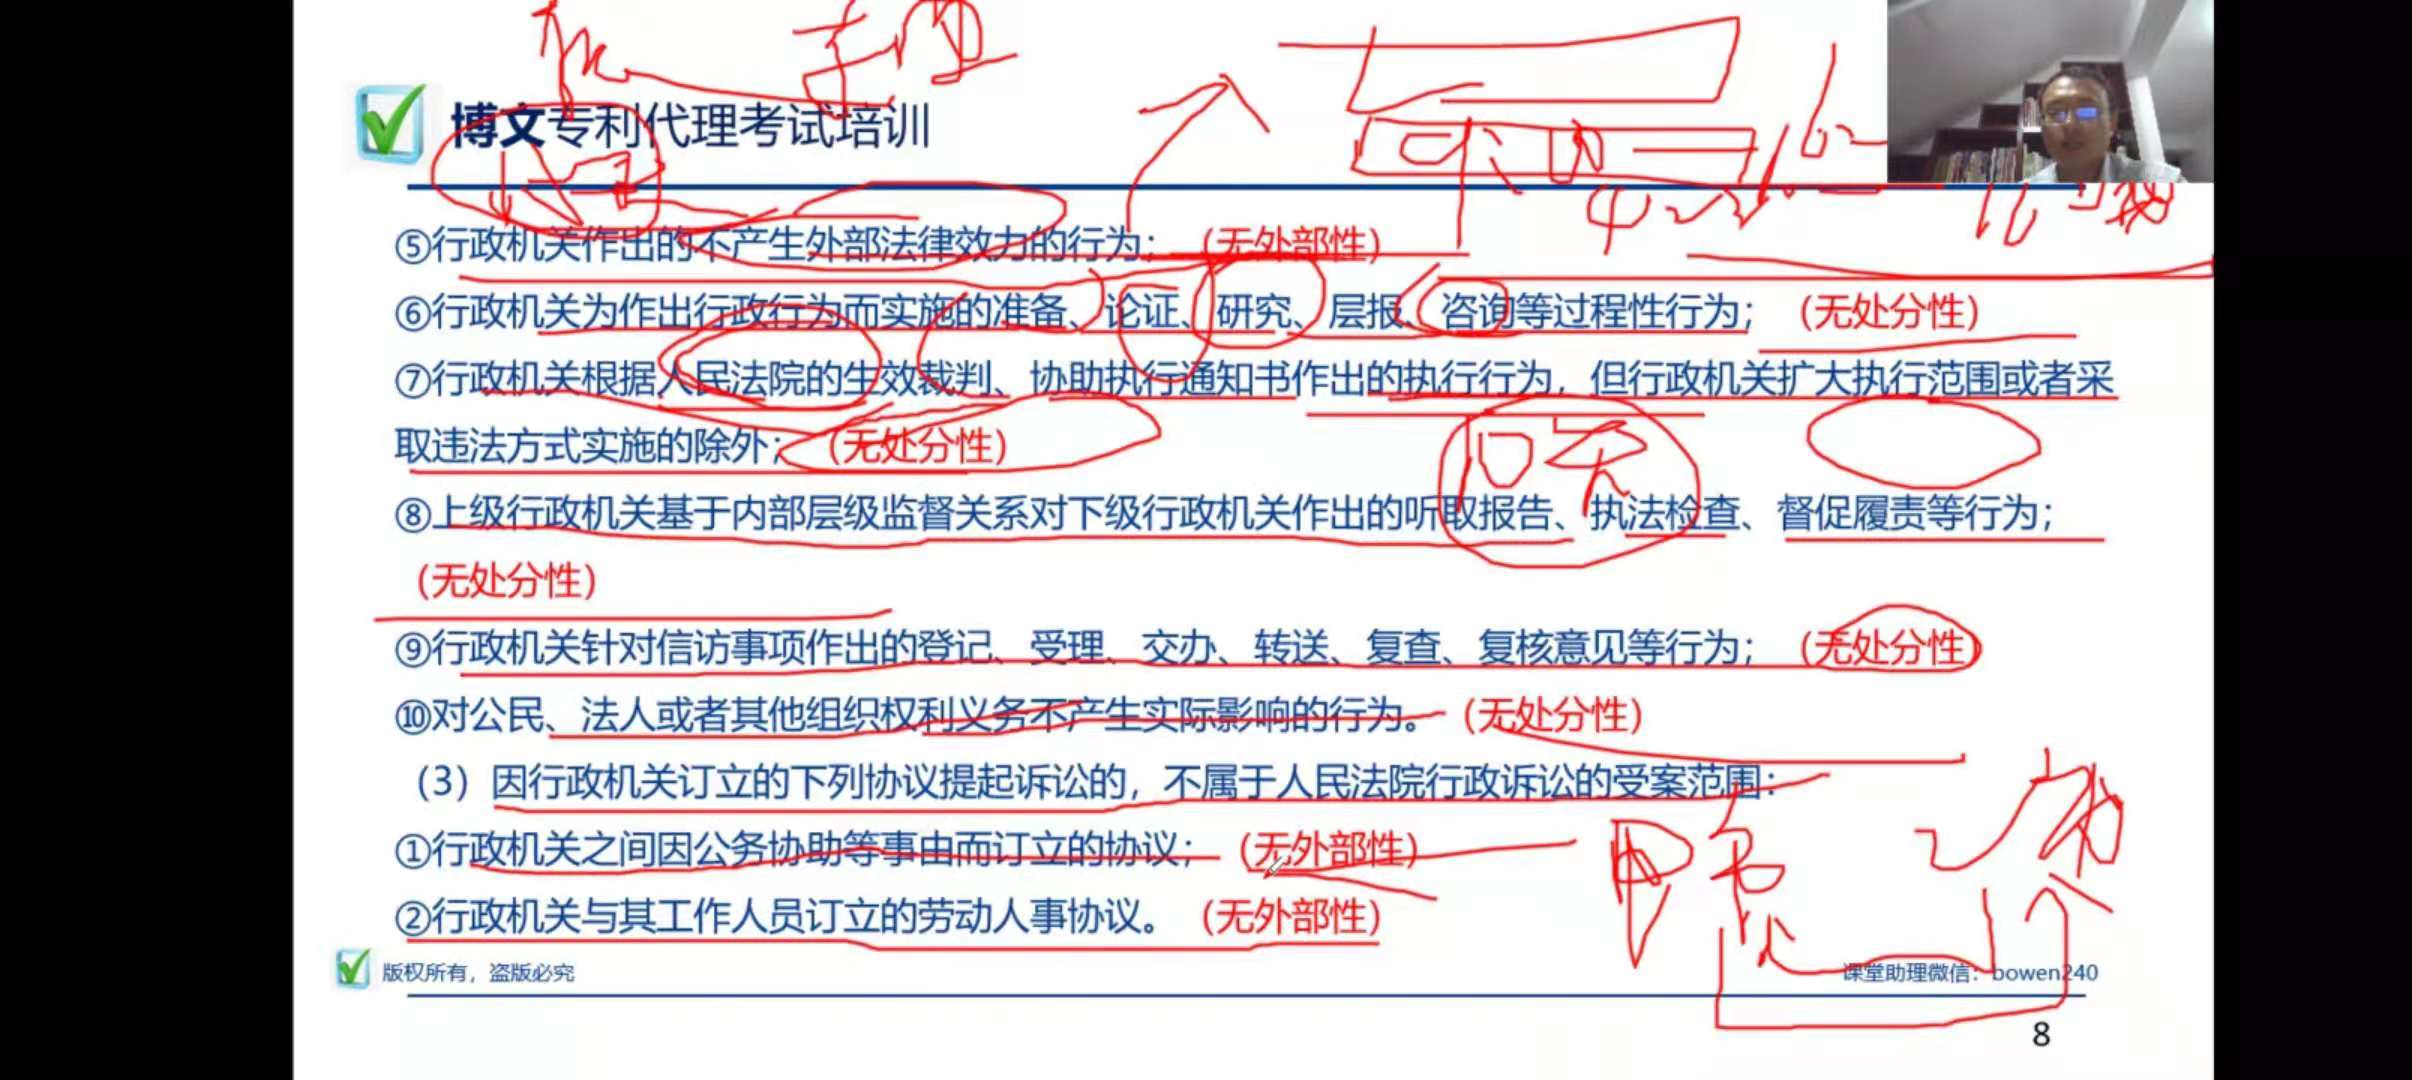 博文专利代理考试培训
⑤行政机关作出的不产生外部法律效力的行为；（无外部性）
⑥行政机关为作出行政行为而实施的准备、论证、研究、层报、咨询等过程性行为；（无处分性）
⑦行政机关根据人民法院的生效裁判、协助执行通知书作出的执行行为，但行政机关扩大执行范围或者采
取违法方式实施的除外；（无处分性）
10天
⑧上级行政机关基于内部层级监督关系对下级行政机关作出的听取报告、执法检查、督促履责等行为；
（无处分性）
⑨行政机关针对信访事项作出的登记、受理、交办、转送、复查、复核意见等行为；（无处分性）
⑩对公民、法人或者其他组织权利义务不产生实际影响的行为。（无处分性）
（3）因行政机关订立的下列协议提起诉讼的，不属于人民法院行政诉讼的受案范围：
①行政机关之间因公务协助等事由而订立的协议；（无外部性）
②行政机关与其工作人员订立的劳动人事协议。（无外部性）
版权所有，盗版必究
课堂助理微信：bowen240
8